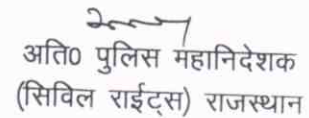 अति0 पुलिस महानिदेशक
(सिविल राईट्स) राजस्थान